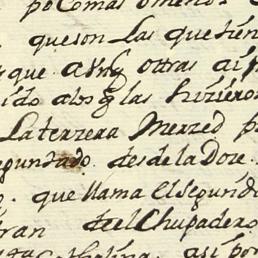 po Comas omenos
que son Las que tien
que aunq ottras ai
ido alos q las hizieron
La terzera Merzed p
apuntado. desde la Doze
que llama El segundo
del Chupadero
así por